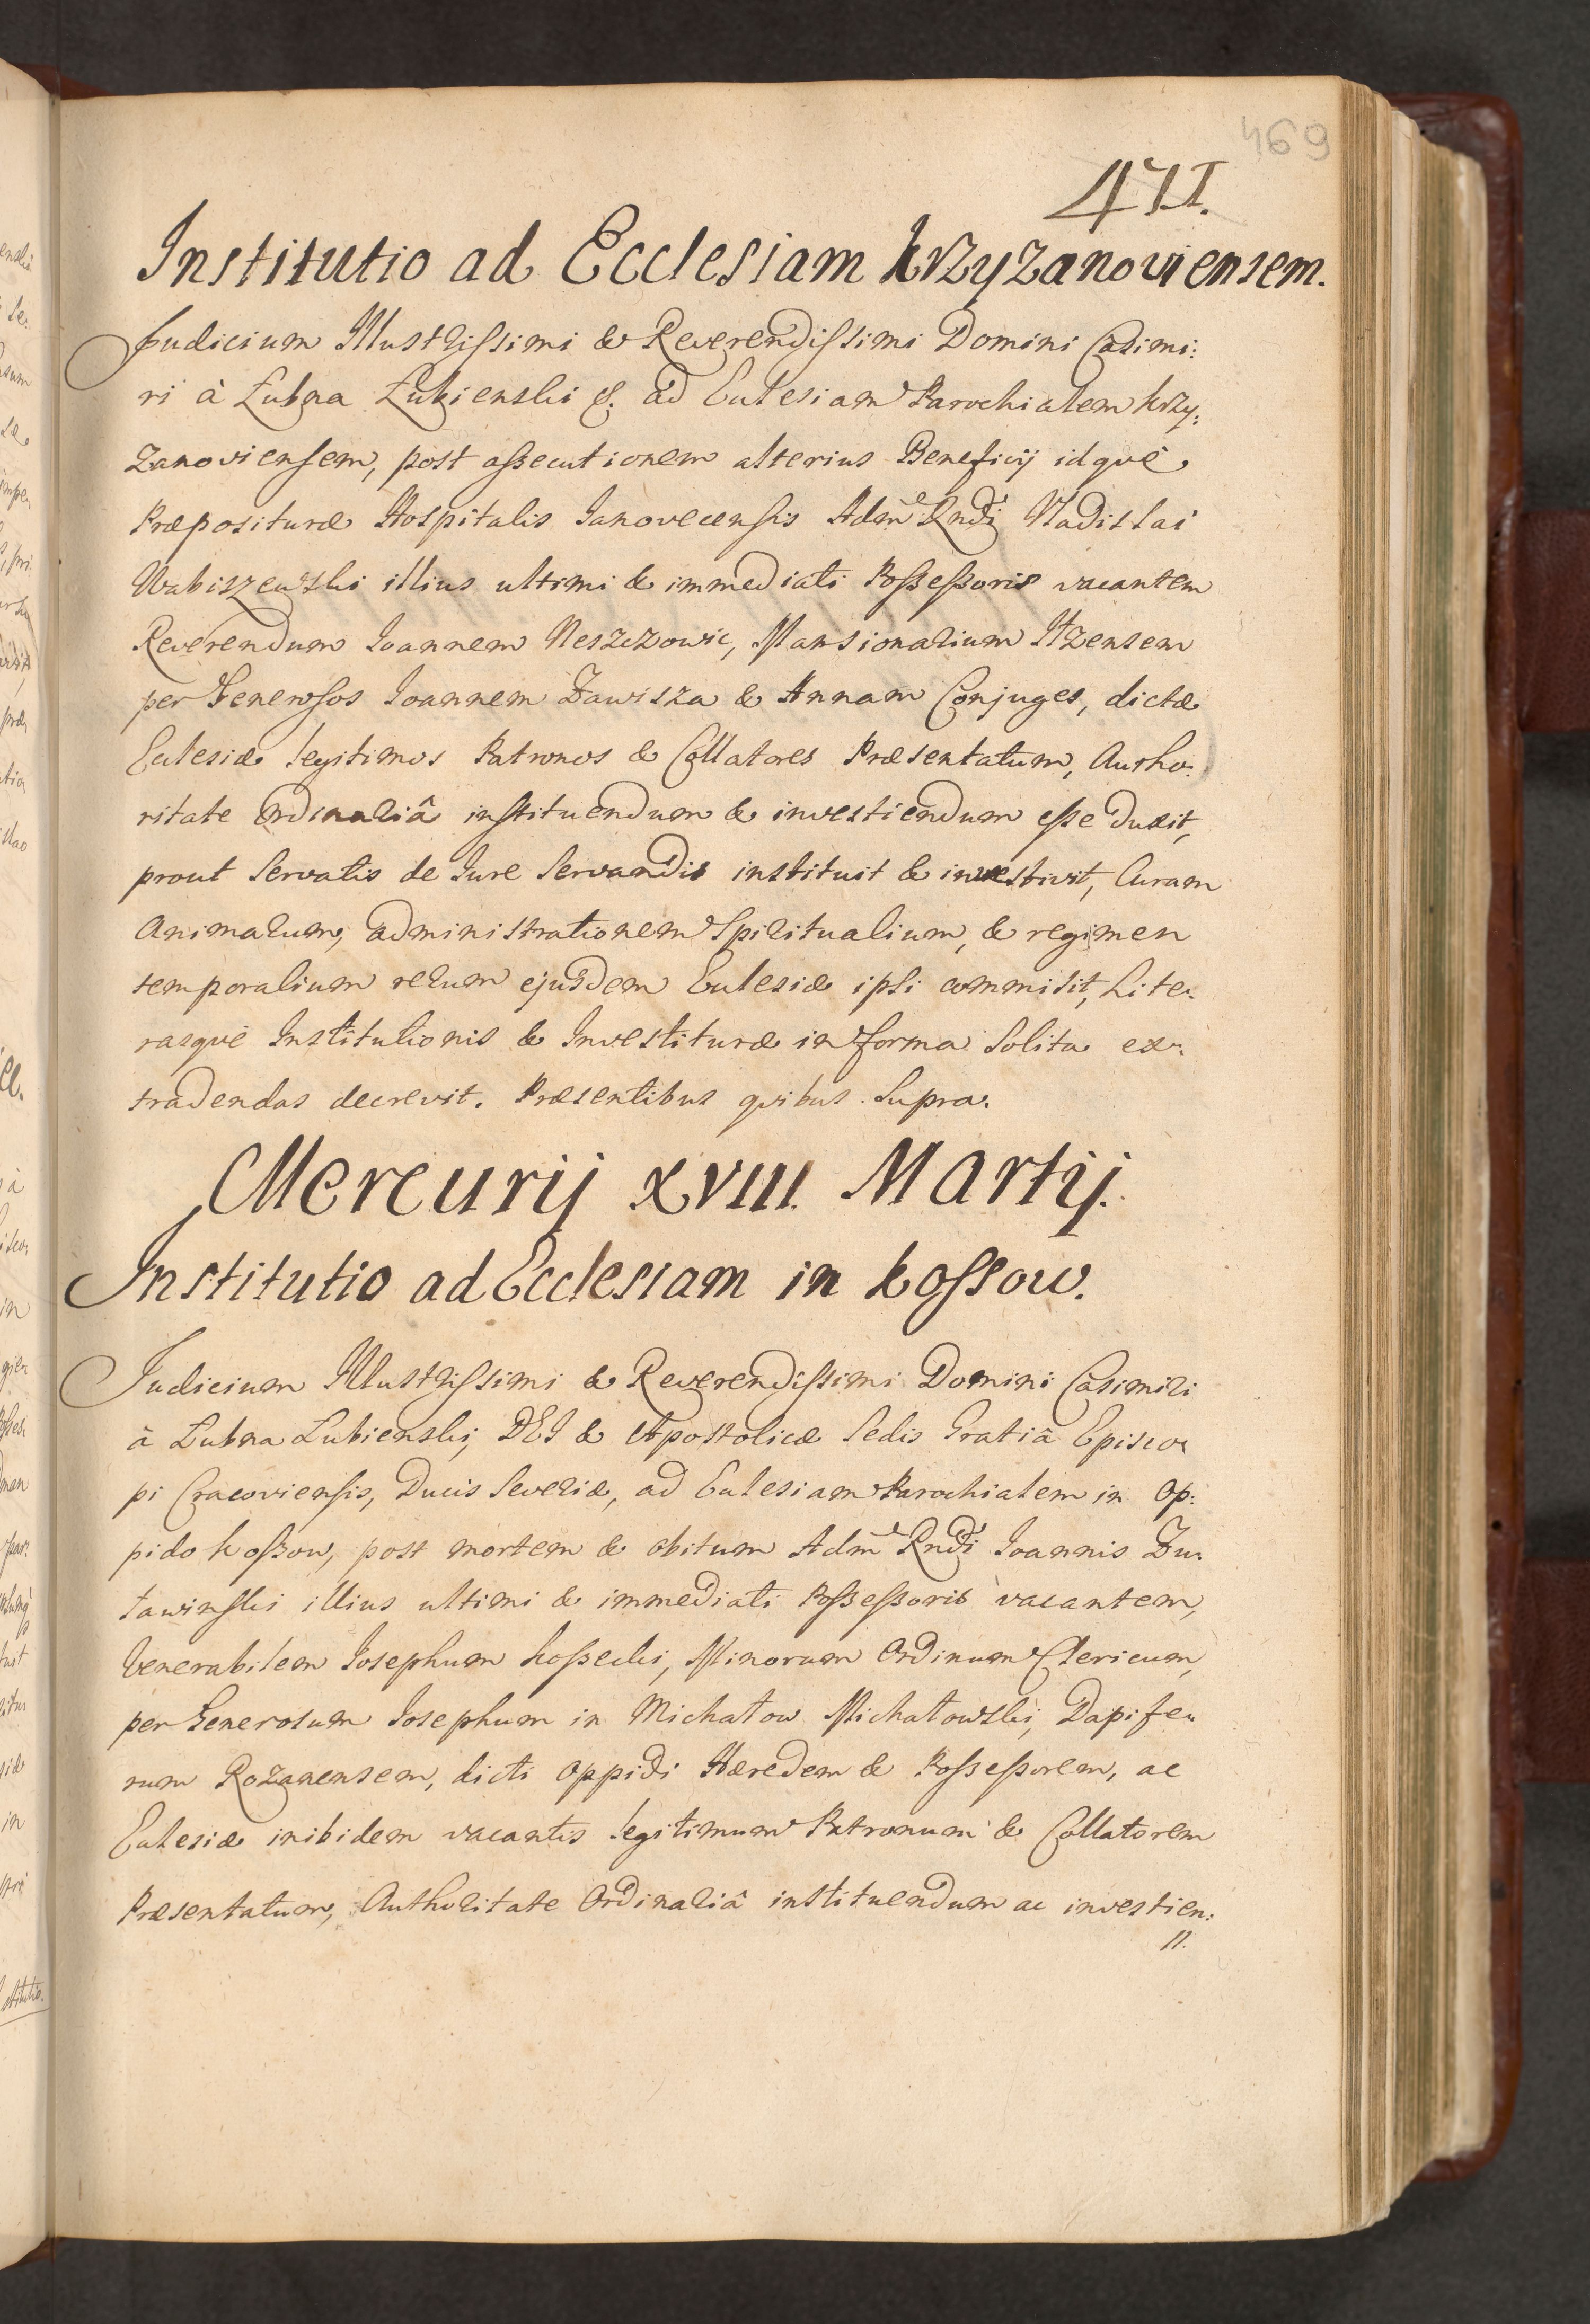 469
471.
Institutio ad Ecclesiam Krzyzanoviensem.
Judicium Illustrissimi & Reverendissimi Domini Casimi:
ri à Łubna Łubienski &. ad Ecclesiam Parochialem Krzy:
zanoviensem, post assecutionem alterius Beneficij idque
Præposituræ Hospitalis Janovecensis Adm Rndi Vladislai
Wabiszewski illius ultimi & immediati Possessoris vacantem
Reverendum Joannem Neszczowic, Mansionarium Itzensem
per Generosos Joannem Zawisza & Annam Conjuges, dictæ
Ecclesiæ legitimos Patronos & Collatores Præsentatum, Autho:
ritate Ordinariâ instituendum & investiendum esse duxit,
prout servatis de Jure servandis instituit & investivit, Curam
Animarum, administrationem Spiritualium, & regimen
temporalium rerum ejusdem Ecclesiæ ipsi commisit, Lite:
rasque Institutionis & Investituræ in forma solita ex:
tradendas decrevit. Præsentibus quibus supra.
Mercurij XVIII. Martij.
Institutio ad Ecclesiam in Kossow.
Judicium Illustrissimi & Reverendissimi Domini Casimiri
à Łubna Łubienski, DEI & Apostolicæ Sedis Gratiâ Episco:
pi Cracoviensis, Ducis Severiæ, ad Ecclesiam Parochialem in Op:
pido Kossow, post mortem & obitum Adm Rndi Joannis Zu:
ławinski illius ultimi & immediati Possessoris vacantem,
Venerabilem Josephum Kossecki, Minorum Ordinum Clericum,
per Generosum Josephum in Michałow Michałowski, Dapife:
rum Rozanensem, dicti Oppidi Hæredem & Possessorem, ac
Ecclesiæ inibidem vacantis legitimum Patronum & Collatorem
Præsentatum, Authoritate Ordinariâ instituendum ac investien:
11.